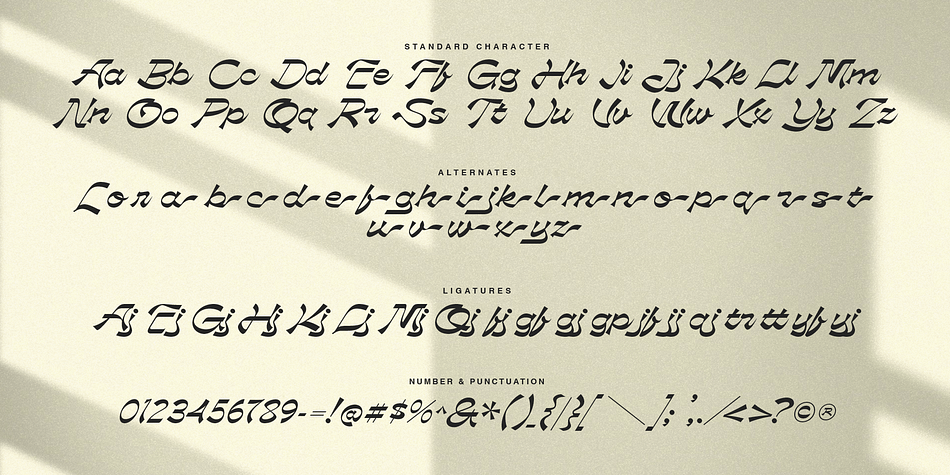 STANDARD CHARACTER
Aa Bb Cc Dd Ee Ff Gg Hh Ii Jj Kk Ll Mm
Nn Oo Pp Qq Rr Ss Tt Uu Vv Ww Xx Yy Zz
ALTERNATES
L o r a b c d e f g h i j k l m n o p q r s t
u v w x y z
LIGATURES
Aj Ej Gj Hj Kj Lj Mj Qj fj gf gj gp jf jj qj tr tt yf yj
NUMBER & PUNCTUATION
0123456789-=!@#$%^&*()_{|}[\];',./<>?©®